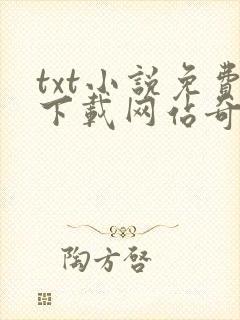 txt小說免費
下載网佔奇
陶方啓